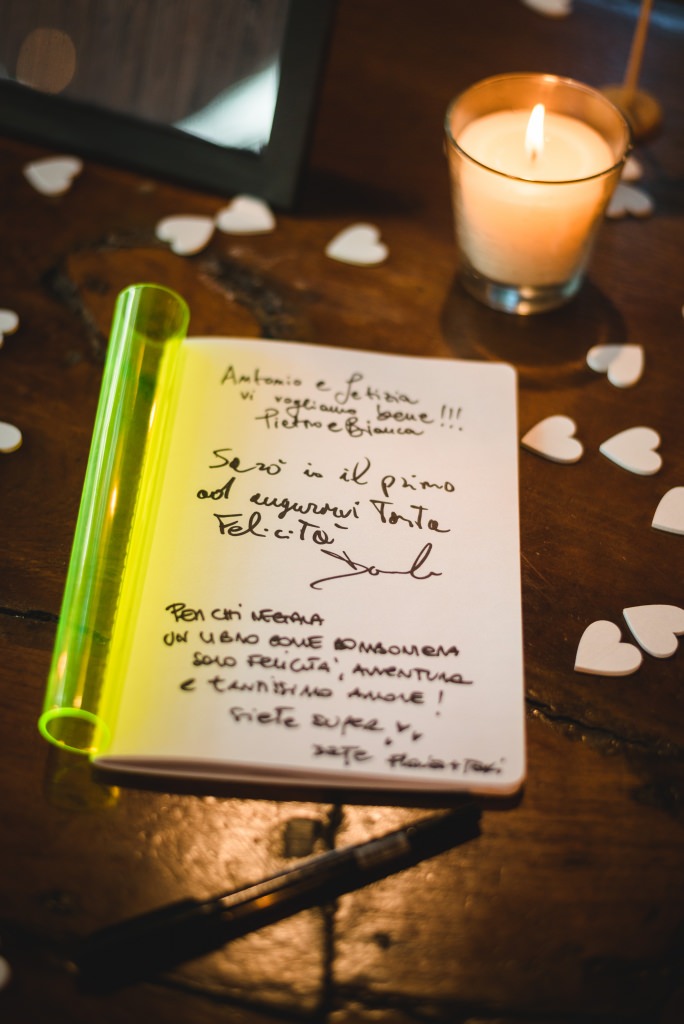 Antonio e Letizia
vi vogliamo bene!!!
Pietro e Bianca
Sarò io il primo
ad augurarvi Tanta
Felicità
PER CHI REGALA
UN LIBRO COME BOMBONIERA
SOLO FELICITA', AVVENTURA
E TANTISSIMO AMORE!
Siete super